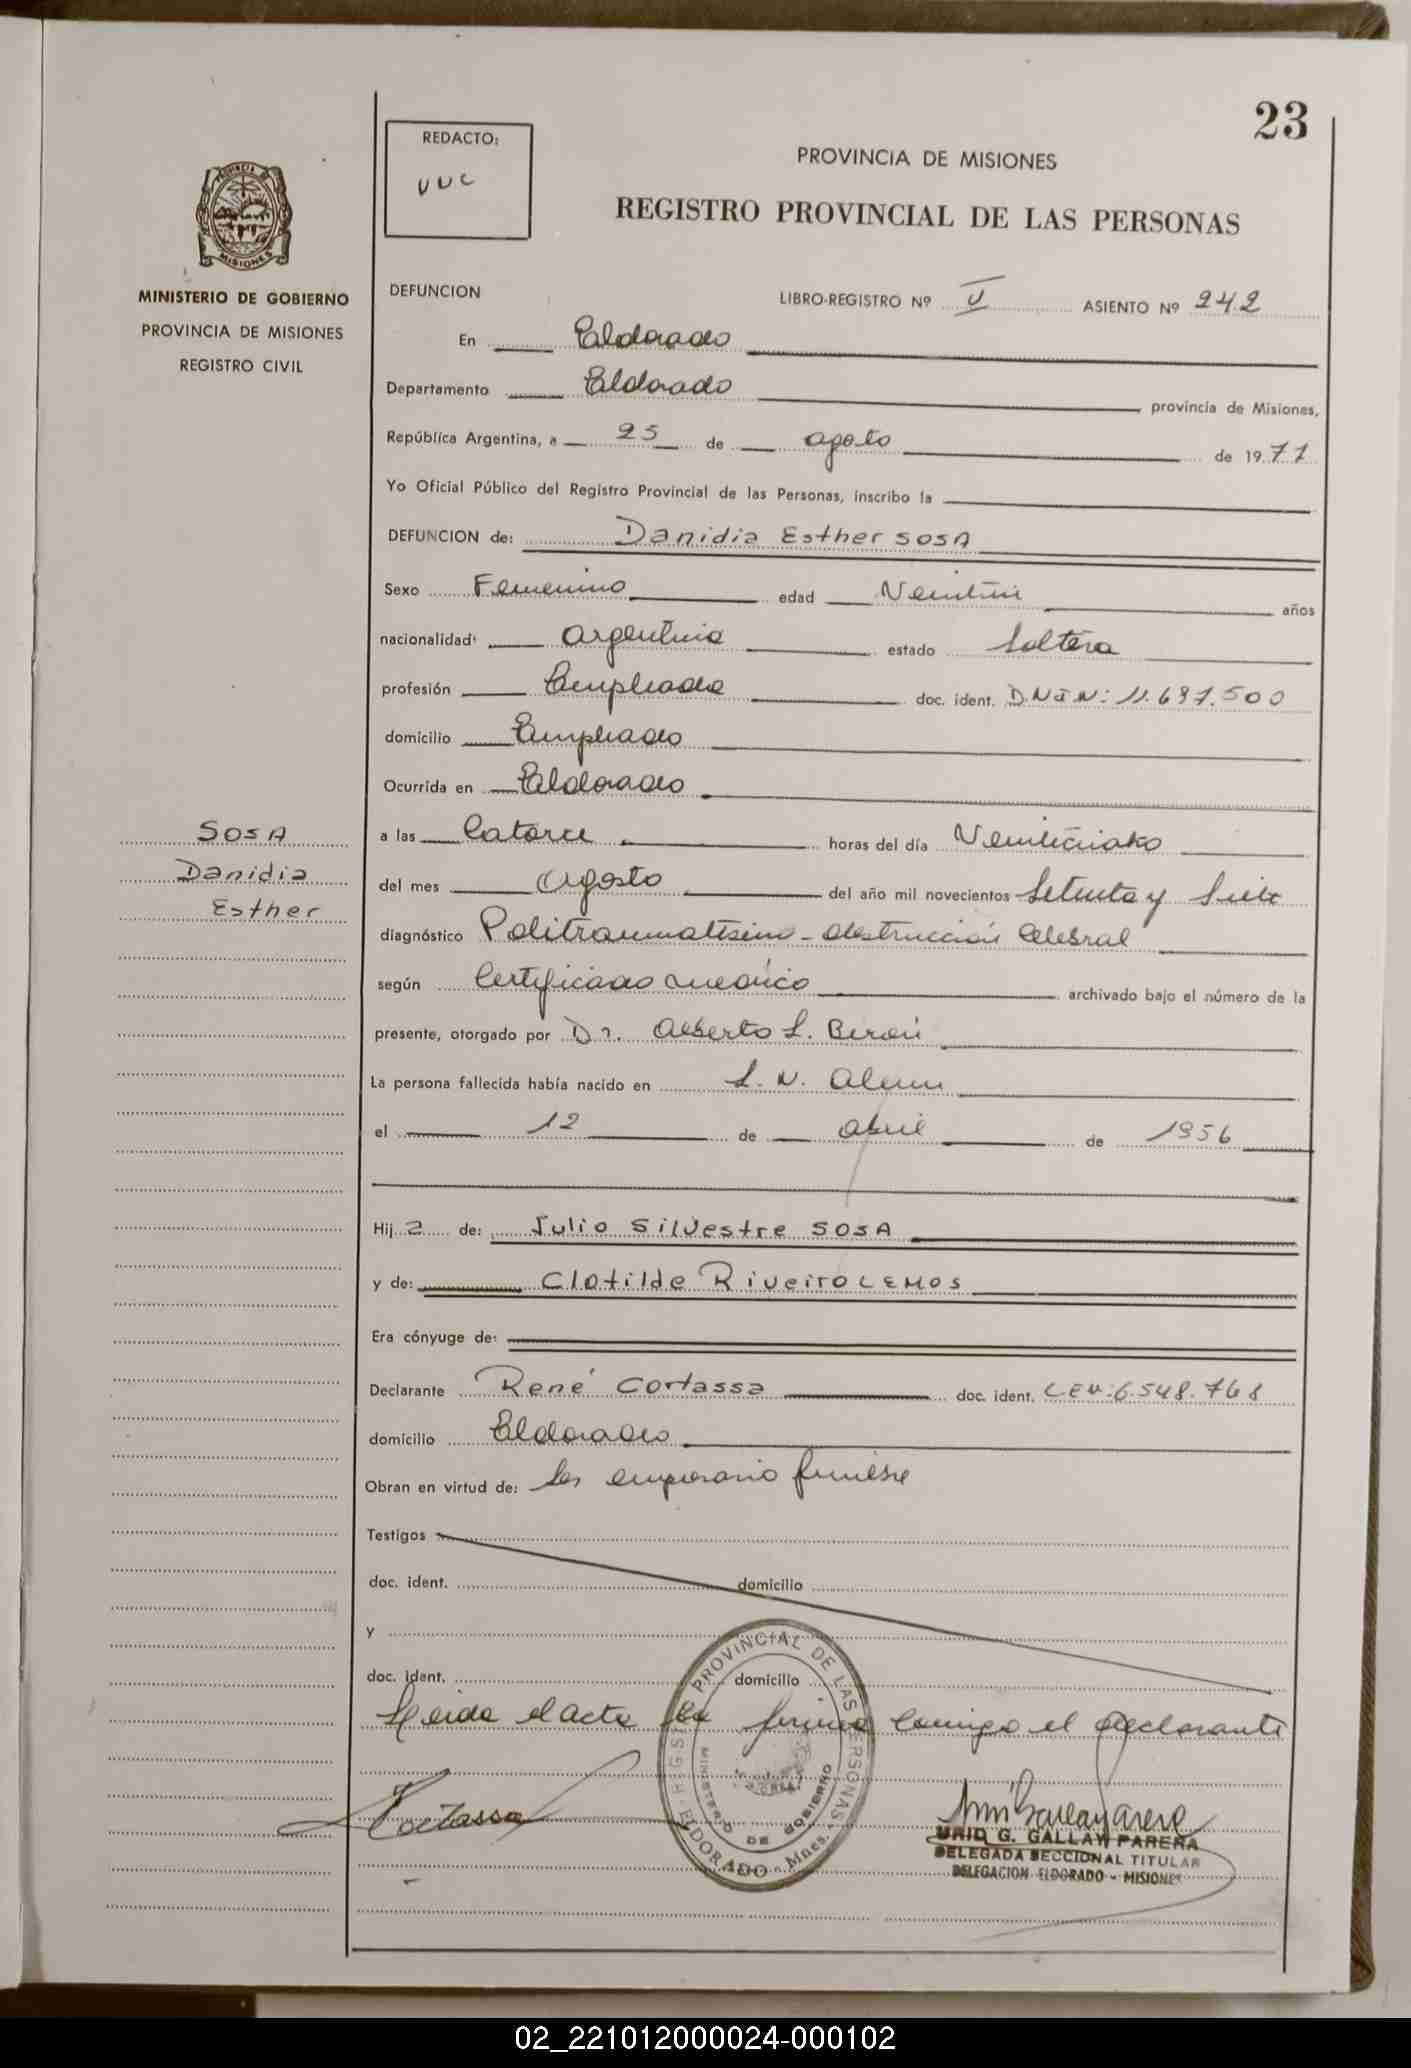 23
REDACTO:
VVC
PROVINCIA DE MISIONES
REGISTRO PROVINCIAL DE LAS PERSONAS
PROVINCIA DE
MISIONES
MINISTERIO DE GOBIERNO
PROVINCIA DE MISIONES
REGISTRO CIVIL
DEFUNCION LIBRO-REGISTRO Nº V ASIENTO Nº 242
En Eldorado
Departamento Eldorado provincia de Misiones,
República Argentina, a 25 de agosto de 1977
Yo Oficial Público del Registro Provincial de las Personas, inscribo la
DEFUNCION de: Danidia Esther SOSA
Sexo Femenino edad Veintiún años
nacionalidad argentina estado Soltera
profesión Empleada doc. ident. D.N.I.Nº: 11.697.500
domicilio Empleado
Ocurrida en Eldorado
a las Catorce horas del día Veinticuatro
del mes Agosto del año mil novecientos Setenta y Siete
diagnóstico Politraumatismo - obstrucción Celebral
según Certificado medico archivado bajo el número de la
presente, otorgado por Dr. Alberto L. Beron
La persona fallecida había nacido en L. N. Alem
el 12 de abril de 1956
Hija de: Julio Silvestre SOSA
y de: Clotilde Riveiro LEMOS
Era cónyuge de:
Declarante René Cortassa doc. ident. L.E.Nº:6.548.768
domicilio Eldorado
Obran en virtud de: Ser empresario fúnebre
Testigos
doc. ident. domicilio
y
doc. ident. domicilio
Leida el acta la firma conmigo el declarante
SOSA
Danidia
Esther
REGISTRO PROVINCIAL DE LAS PERSONAS
MINISTERIO DE GOBIERNO
ELDORADO - Mnes.
Cortassa
G. GALLAY PARERA
DELEGADA SECCIONAL TITULAR
DELEGACION ELDORADO - MISIONES
02_221012000024-000102